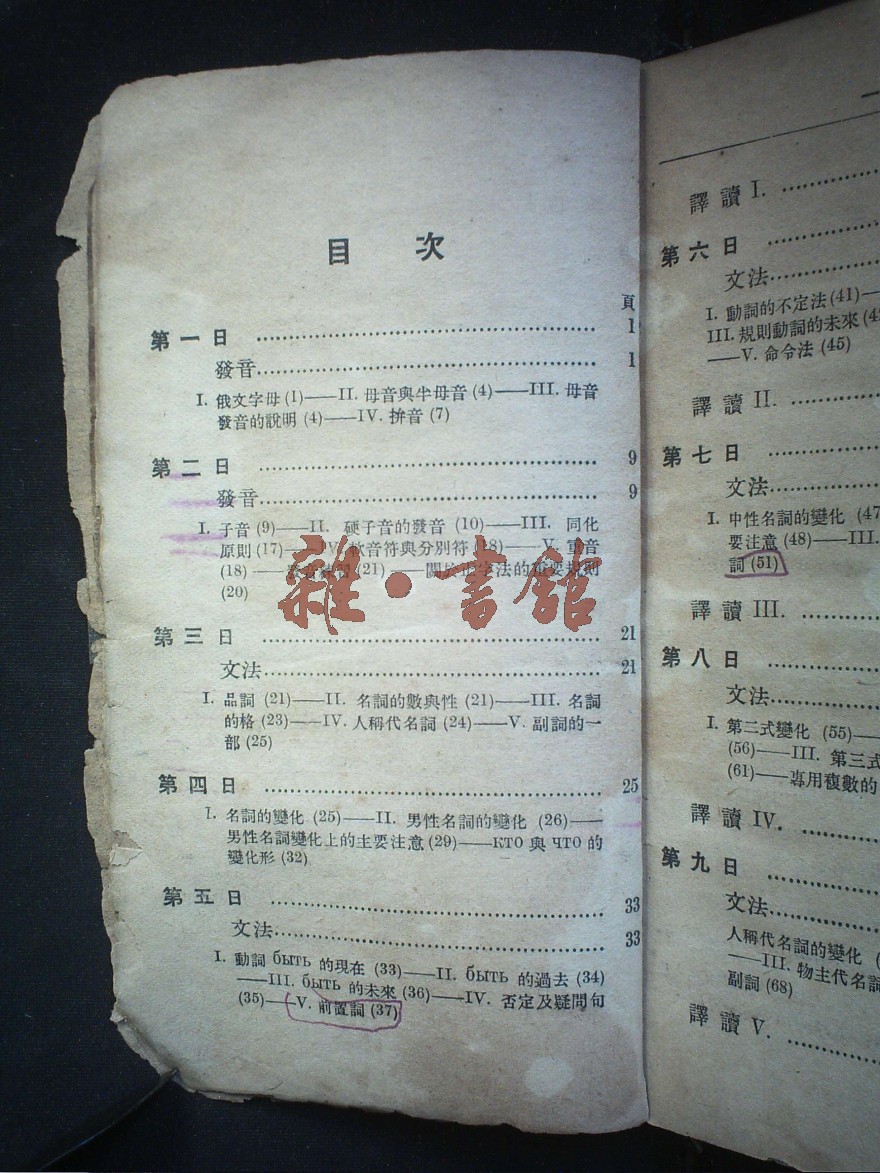 目 次
頁
第一日 ………… 1
發音………… 1
I. 俄文字母 (1)——II. 母音與半母音 (4)——III. 母音
發音的說明 (4)——IV. 拚音 (7)
第二日 ………… 9
發音………… 9
I. 子音 (9)——II. 硬子音的發音 (10)——III. 同化
原則 (17)——IV. 軟音符與分別符 (18)——V. 重音
(18)——(21)——關於的重要規則
(20)
雜·書館
第三日 ………… 21
文法………… 21
I. 品詞 (21)——II. 名詞的數與性 (21)——III. 名詞
的格 (23)——IV. 人稱代名詞 (24)——V. 副詞的一
部 (25)
第四日 ………… 25
I. 名詞的變化 (25)——II. 男性名詞的變化 (26)——
男性名詞變化上的主要注意 (29)——КТО 與 ЧТО 的
變化形 (32)
第五日 ………… 33
文法………… 33
I. 動詞 быть 的現在 (33)——II. быть 的過去 (34)
——III. быть 的未來 (36)——IV. 否定及疑問句
(35)——V. 前置詞 (37)
譯讀 I. …………
第六日 …………
文法…………
I. 動詞的不定法 (41)—
III. 規則動詞的未來
——V. 命令法 (45)
譯讀 II. …………
第七日 …………
文法…………
I. 中性名詞的變化 (47
要注意 (48)——III.
詞 (51)
譯讀 III. …………
第八日 …………
文法…………
I. 第二式變化 (55)—
(56)——III. 第三式
(61)——專用複數的
譯讀 IV. …………
第九日 …………
文法…………
人稱代名詞的變化
——III. 物主代名詞
副詞 (68)
譯讀 V. …………